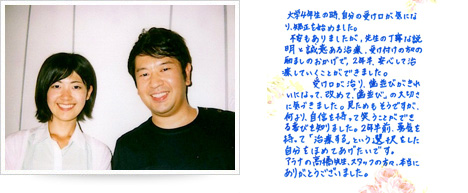 大学4年生の時、自分の受け口が気にな
り、矯正を始めました。
不安もありましたが、先生の丁寧な説
明と誠意ある治療、受け付けの方の
励ましのおかげで、2年半、安心して治
療していくことができました。
受け口が治り、歯並びがきれ
いになって、改めて"歯並び"の大切さ
に気づきました。見ためもそうですが、
何より、自信を持って笑うことができ
る喜びを知りました。2年半前、勇気を
持って"治療する"という選択をした
自分をほめてあげたいです。
先生、スタッフの方々、本当に
ありがとうございました。